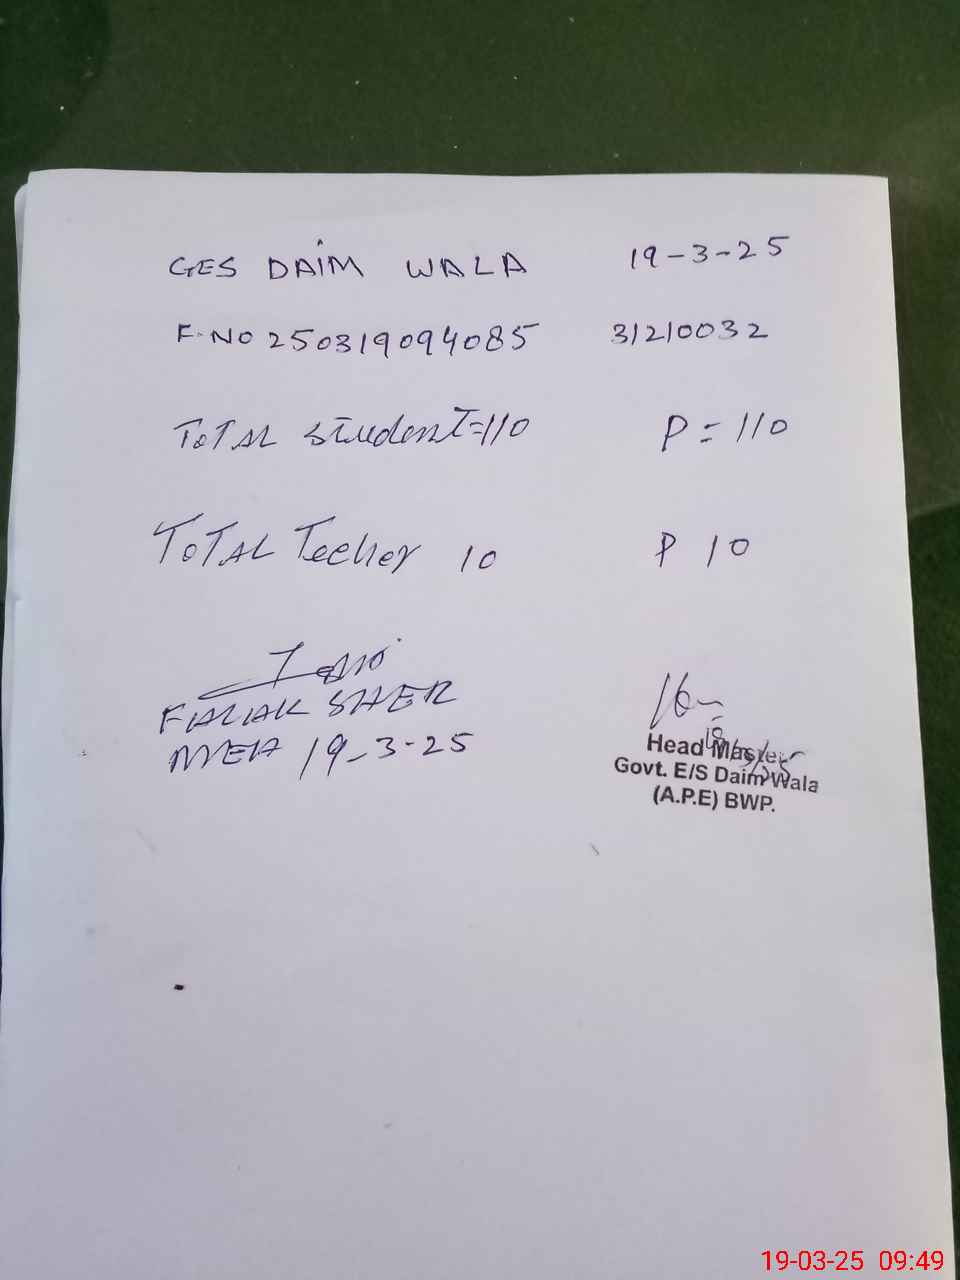 GES DAIM WALA 19-3-25
F.NO 250319094085 31210032
ToTAL student=110 P=110
ToTAL Techer 10 P 10
FALAK SHER
MEA 19-3-25
Head Master
Govt. E/S Daim Wala
(A.P.E) BWP.
19-03-25 09:49